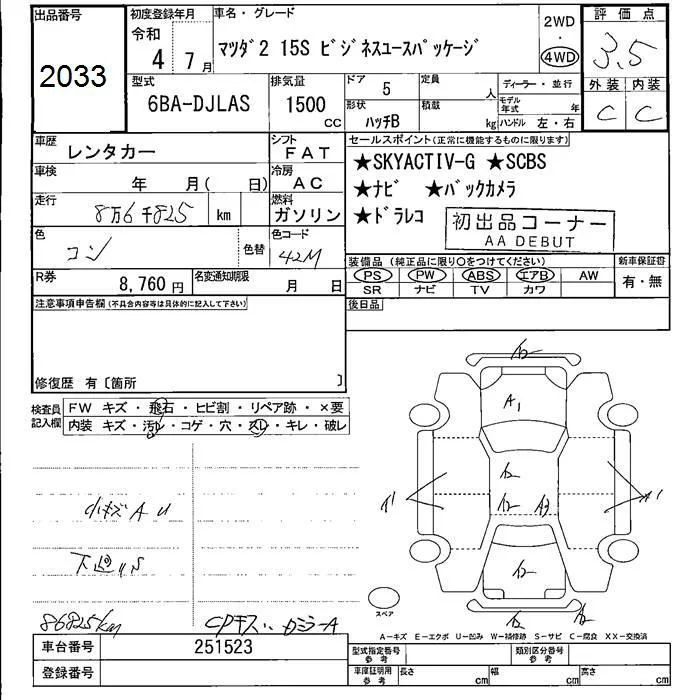 出品番号
2033
初度登録年月
令和
4 7月
車名・グレード
マツダ2 15S ビジネスユースパッケージ
2WD
・
4WD
評価点
3.5
外装 内装
C C
型式
6BA-DJLAS
排気量
1500
CC
ドア 5
形状
ハッチB
定員
人
積載
kg
ディーラー・並行
モデル年式 年
ハンドル 左・右
車歴
レンタカー
シフト
FAT
車検
年 月( 日)
冷房
AC
走行
8万6千825 km
燃料
ガソリン
色
コン
色替
色コード
42M
R券
8,760 円
名変通知期限
月 日
セールスポイント(正常に機能するものに限ります)
★SKYACTIV-G ★SCBS
★ナビ ★バックカメラ
★ドラレコ
初出品コーナー
AA DEBUT
装備品 (純正品に限り○をつけてください)
PS PW ABS エアB AW
SR ナビ TV カワ
新車保証書
有・無
後日品
注意事項申告欄(不具合内容等は具体的に記入して下さい)
修復歴 有〔箇所 〕
検査員
記入欄
FW キズ・飛石・ヒビ割・リペア跡・×要
内装 キズ・汚レ・コゲ・穴・スレ・キレ・破レ
小キズAU
下廻りS
86825km
CPキズ
A1
スペア
A−キズ E−エクボ U−凹み W−補修跡 S−サビ C−腐食 XX−交換済
車台番号
251523
登録番号
型式指定番号
参考
類別区分番号
参考
車庫証明用
参考
長さ cm
幅 cm
高さ cm